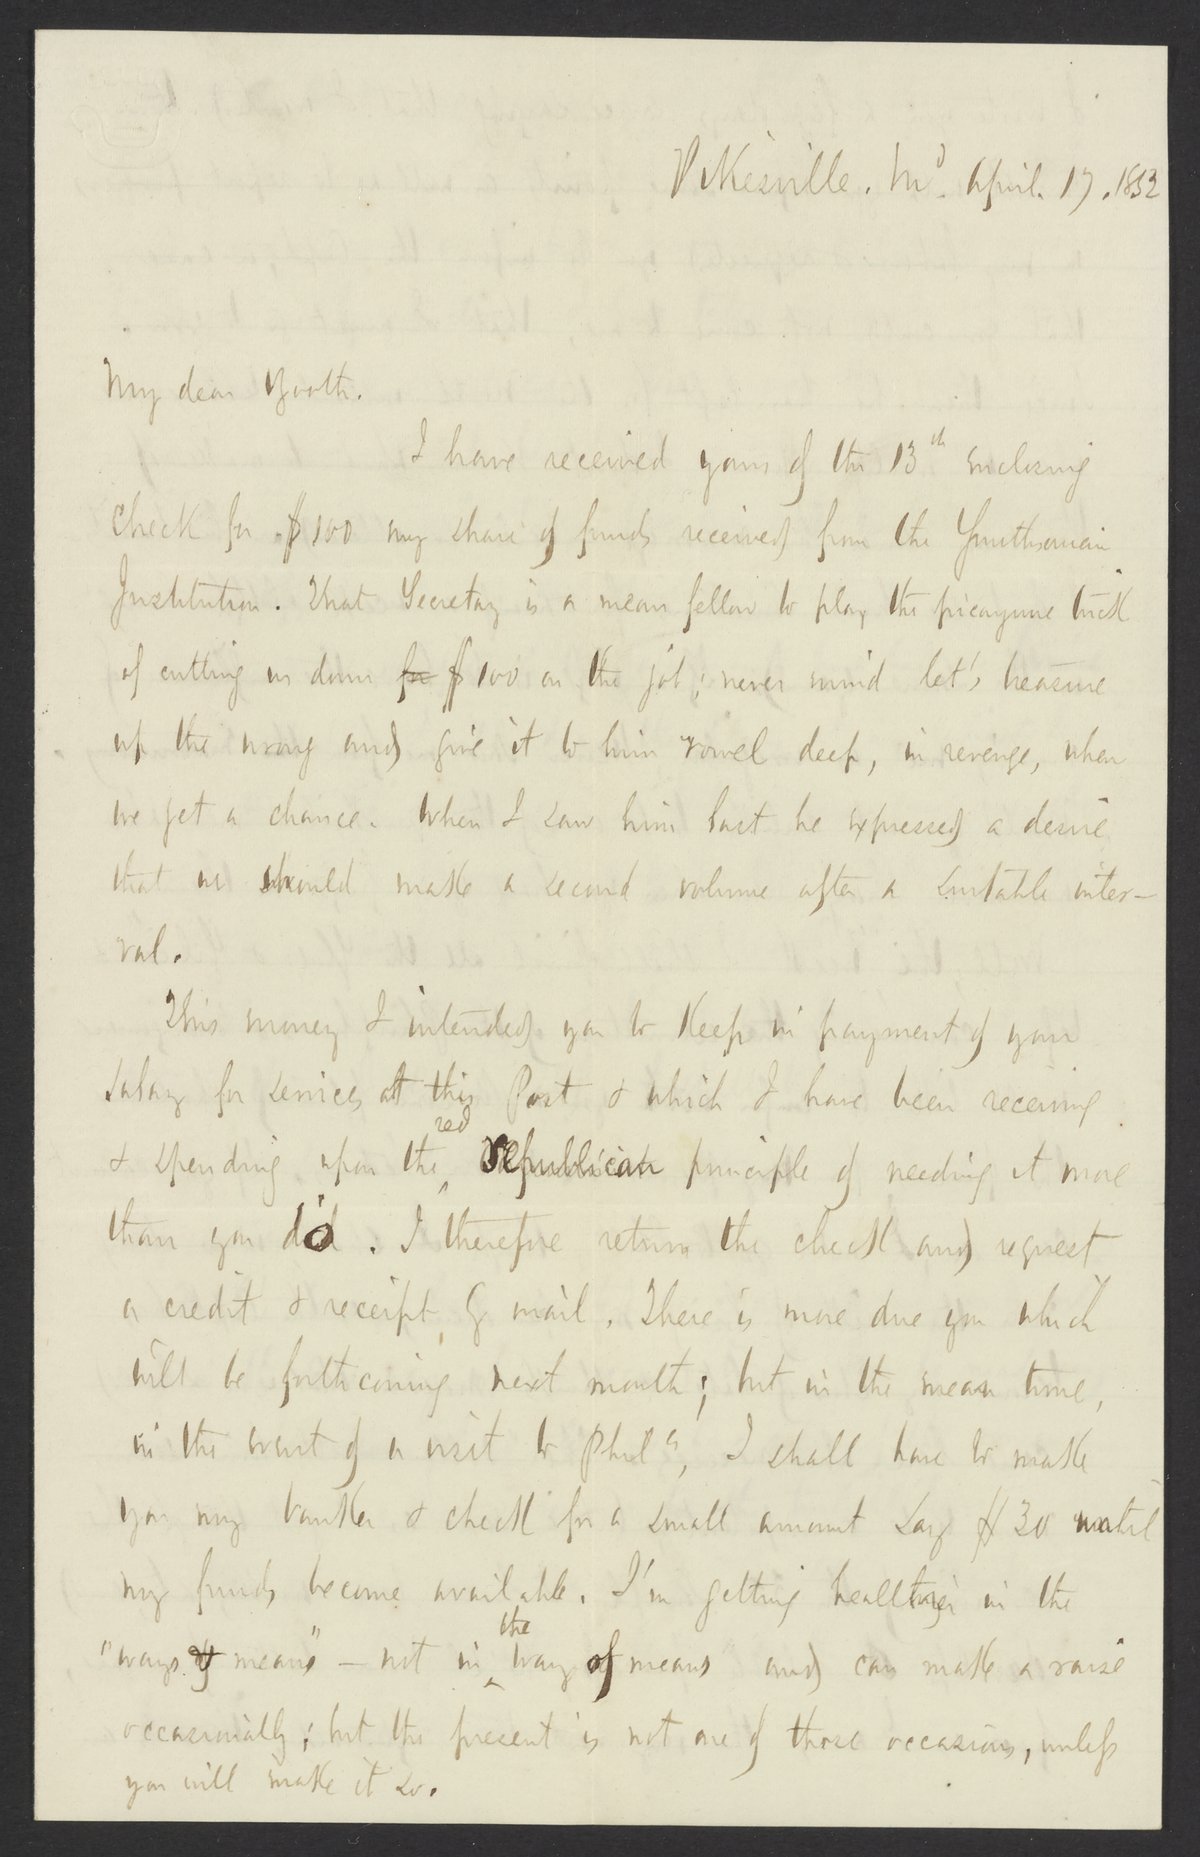 Pikesville. Md. April. 17. 1852
My dear Booth.
I have received yours of the 13th enclosing
check for $100 my share of funds received from the Smithsonian
Institution. That Secretary is a mean fellow to play the picayune trick
of cutting us down for $100 on the job; never mind let's treasure
up the wrong and give it to him rowel deep, in revenge, when
we get a chance. When I saw him last he expressed a desire
that we should make a second volume after a suitable inter-
val.
This money I intended you to keep in payment of your
salary for services at this Post & which I have been receiving
& spending upon the red republican principle of needing it more
than you did. I therefore return the check and request
a credit & receipt by mail. There is more due you which
will be forthcoming next month; but in the mean time,
in the event of a visit to Phila, I shall have to make
you my banker & check for a small amount say $30 until
my funds become available. I'm getting healthier in the
"ways & means" - not in the way of means and can make a raise
occasionally; but the present is not one of those occasions, unless
you will make it so.